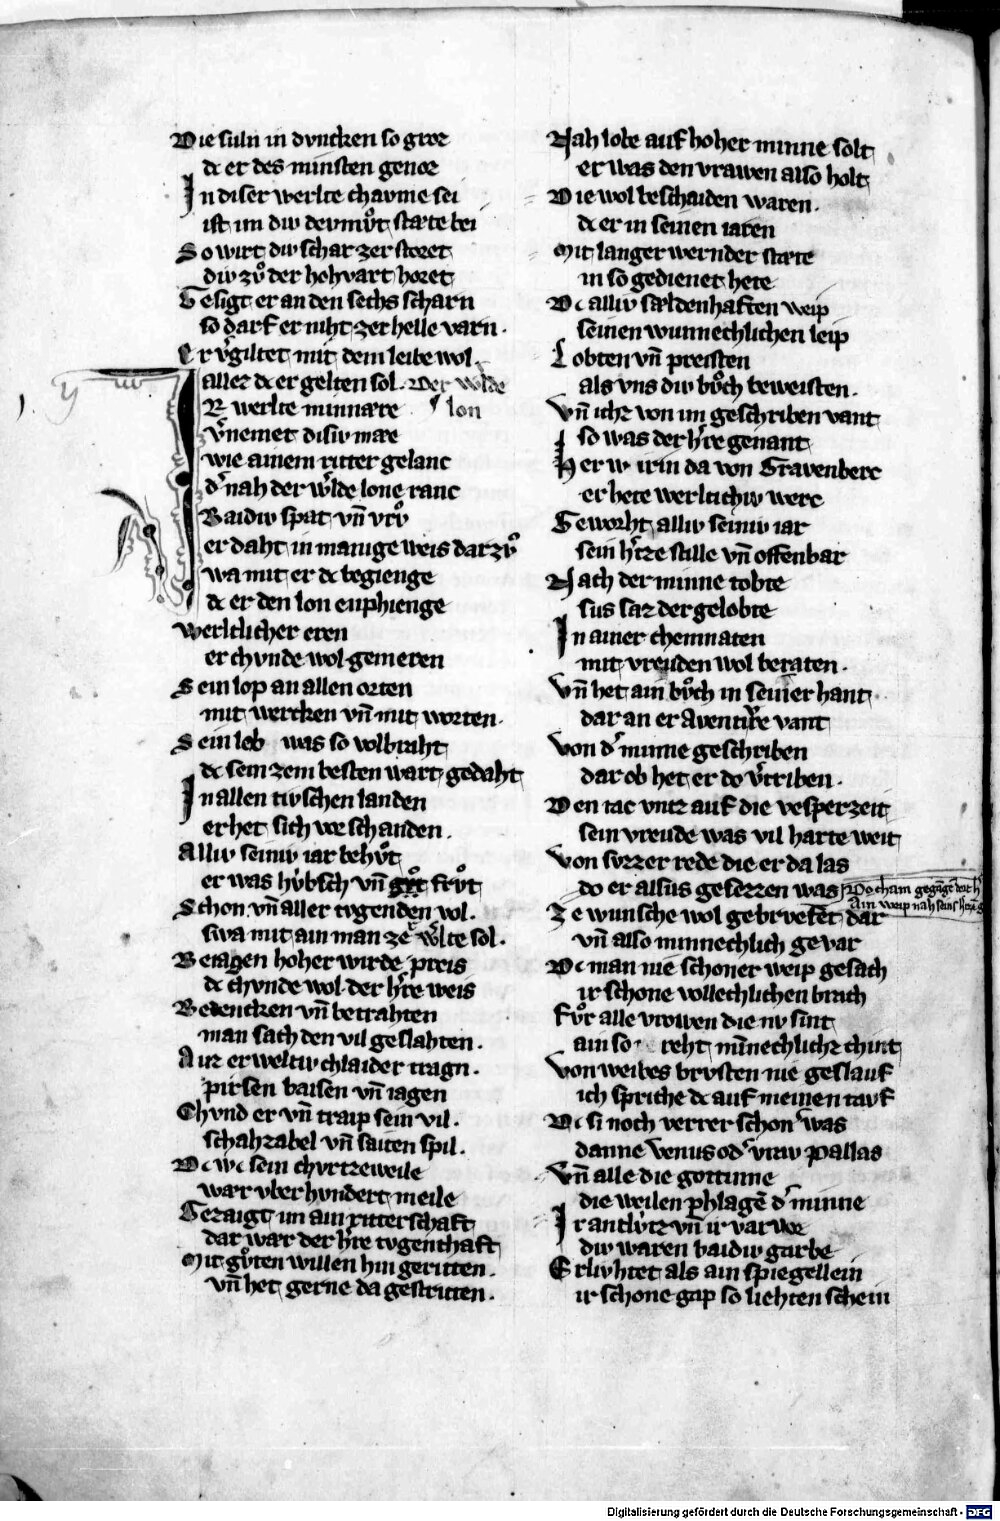 Die suln in dvncken so groz
dc er des minsten genoz
In diser werlte chavme sei
ist im div devmvͤt stæte bei
So wirt div schar zerstoret
div zvͦ der hohvart horet
Gesigt er an den sechs scharn
so darf er niht zer helle varn .
Er vͥgiltet mit dem leibe wol
allez dc er gelten sol . Der wͥlde
IR werlte minnære lon
vͥnemet disiv mære
wie ainem ritter gelanc
dͥ nah der wͥlde lone ranc
Baidiv spat vn̄ vrvͦ
er daht in manige weis dar zvͦ
wa mit er dc begienge
dc er den lon enphienge
werltlicher eren
er chvnde wol gemeren
Sein lop an allen orten
mit wercken vn̄ mit worten .
Sein leb was so volbraht
dc sein zem besten wart gedaht
In allen tivschen landen
er het sich vor schanden .
Alliv seiniv iar behvͦt
er was hvͤbsch vn̄ frvͦt
Schon vn̄ aller tvgenden vol .
swa mit ain man ze wͥlte sol .
Beiagen hoher wirde preis
dc chvnde wol der hͥre weis
Bedencken vn̄ betrahten
man sach den vil geslahten .
Auz erweltiv chlaider tragn .
pirsen baisen vn̄ iagen
Chvnd er vn̄ traip sein vil .
schahzabel vn̄ saiten spil .
Dc wc sein chvrtzeweile
wær vber hvndert meile
Gezaigt im ain ritterschaft
dar wær der hͥre tvgenthaft
Mit gvͤten willen hin geritten .
vn̄ het gerne da gestritten .
Nah lobe auf hoher minne solt
er was den vrawen also holt
Die wol beschaiden waren .
dc er in seinen iaren
Mit langer wernder stæte
in so gedienet hete
Dc alliv sældenhaften weip
seinen wunnechlichen leip
Lobten vn̄ preisten
als vns div bvͦch beweisten .
Vn̄ ichz von im geschriben vant
so was der hͥre genant
Her wirin da von Gravenberc
er hete werltlichiv werc
Geworht alliv seiniv iar
sein hͥtze stille vn̄ offenbar
Nach der minne tobte
sus saz der gelobte
In ainer chemnaten
mit vreuden wol beraten .
Vn̄ het ain bvͦch in seiner hant
dar an er Aventivͥre vant
Von dͥ minne geschriben
dar ob het er do vͥtriben .
Den tac vntz auf die vesperzeit
sein vreude was vil harte weit
Von svzzer rede die er da las
do er alsus gesezzen was Do cham gegāgē dort hͥ
Ain weip nah seins hͥtzē gͥ
Ze wunsche wol gebrvefet dar
vn̄ also minnechlich gevar
Dc man nie schoner weip gesach
ir schone vollechlichen brach
Fvͤr alle vrowen die nv sint
ain so reht mīnechlichz chint
Von weibes brvsten nie geslauf
ich spriche dc auf meinen tavf
Dc si noch verrer schonͥ was
danne Venus odͥ vraw Pallas
Vn̄ alle die gottinne
die weilen phlagē dͥ minne
Ir antlvͤtz vn̄ ir varwe
div waren baidiv garbe
Erlivhtet als ain spiegellein
ir schone gap so liehten schein
Digitalisierung gefördert durch die Deutsche Forschungsgemeinschaft - DFG